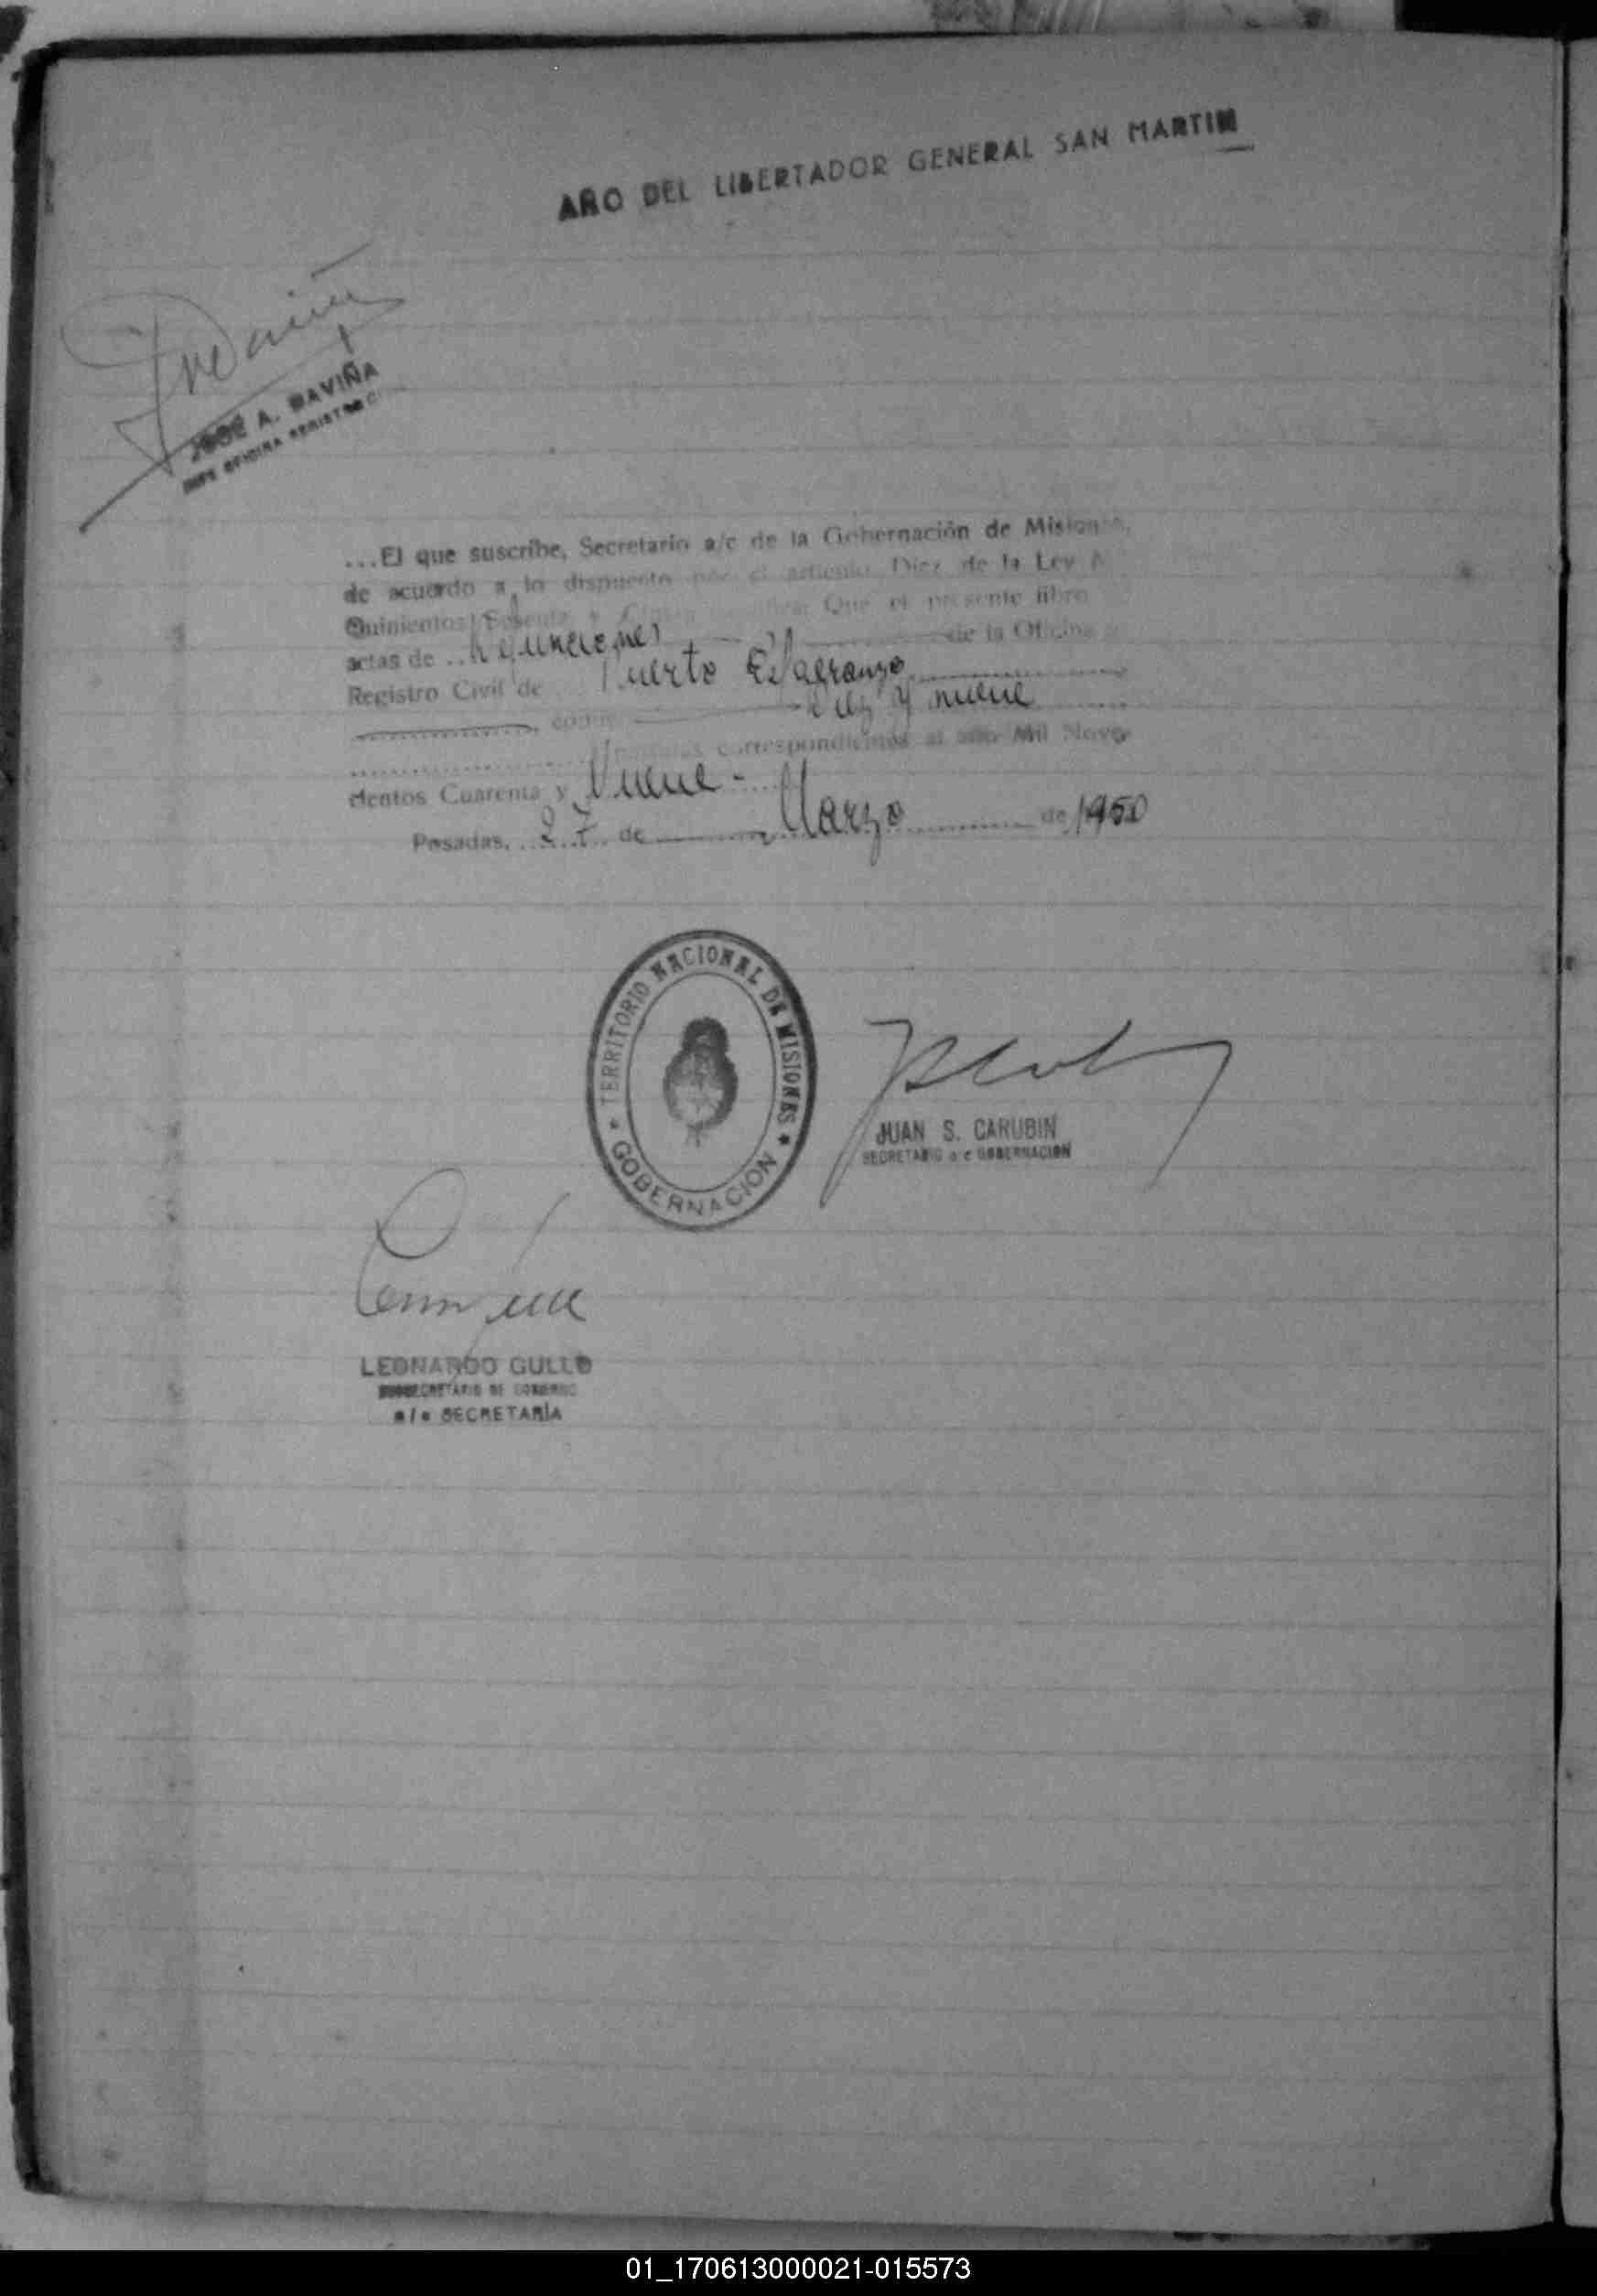 AÑO DEL LIBERTADOR GENERAL SAN MARTIN
JOSÉ A. DAVIÑA
JEFE OFICINA REGISTRO C
...El que suscribe, Secretario a/c de la Gobernación de Misiones,
de acuerdo a lo dispuesto por el artículo Diez de la Ley
Quinientos Sesenta y Que el presente libro
actas de .. Defunciones de la Oficina
Registro Civil de Puerto Esperanza
Diez y nueve
correspondientes al año Mil Nove
cientos Cuarenta y Nueve -
Posadas, 27 de Marzo de 1950
TERRITORIO NACIONAL DE MISIONES
GOBERNACION
JUAN S. CARUBIN
SECRETARIO a/c GOBERNACION
LEONARDO GULLO
SUBSECRETARIO DE GOBIERNO
a/c SECRETARÍA
01_170613000021-015573